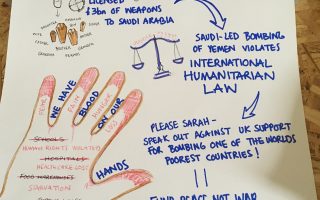 LICENSED
£3bn OF WEAPONS
TO SAUDI ARABIA
SAUDI-LED BOMBING
OF YEMEN VIOLATES
INTERNATIONAL
HUMANITARIAN
LAW
WE HAVE
BLOOD
ON OUR
HANDS
FEAR
PAIN
SCHOOLS
HUMAN RIGHTS VIOLATED
HOSPITALS
HEALTHCARE
STARVATION
PLEASE SARAH-
SPEAK OUT AGAINST UK SUPPORT
FOR BOMBING ONE OF THE WORLDS
POOREST COUNTRIES!
FUND PEACE NOT WAR